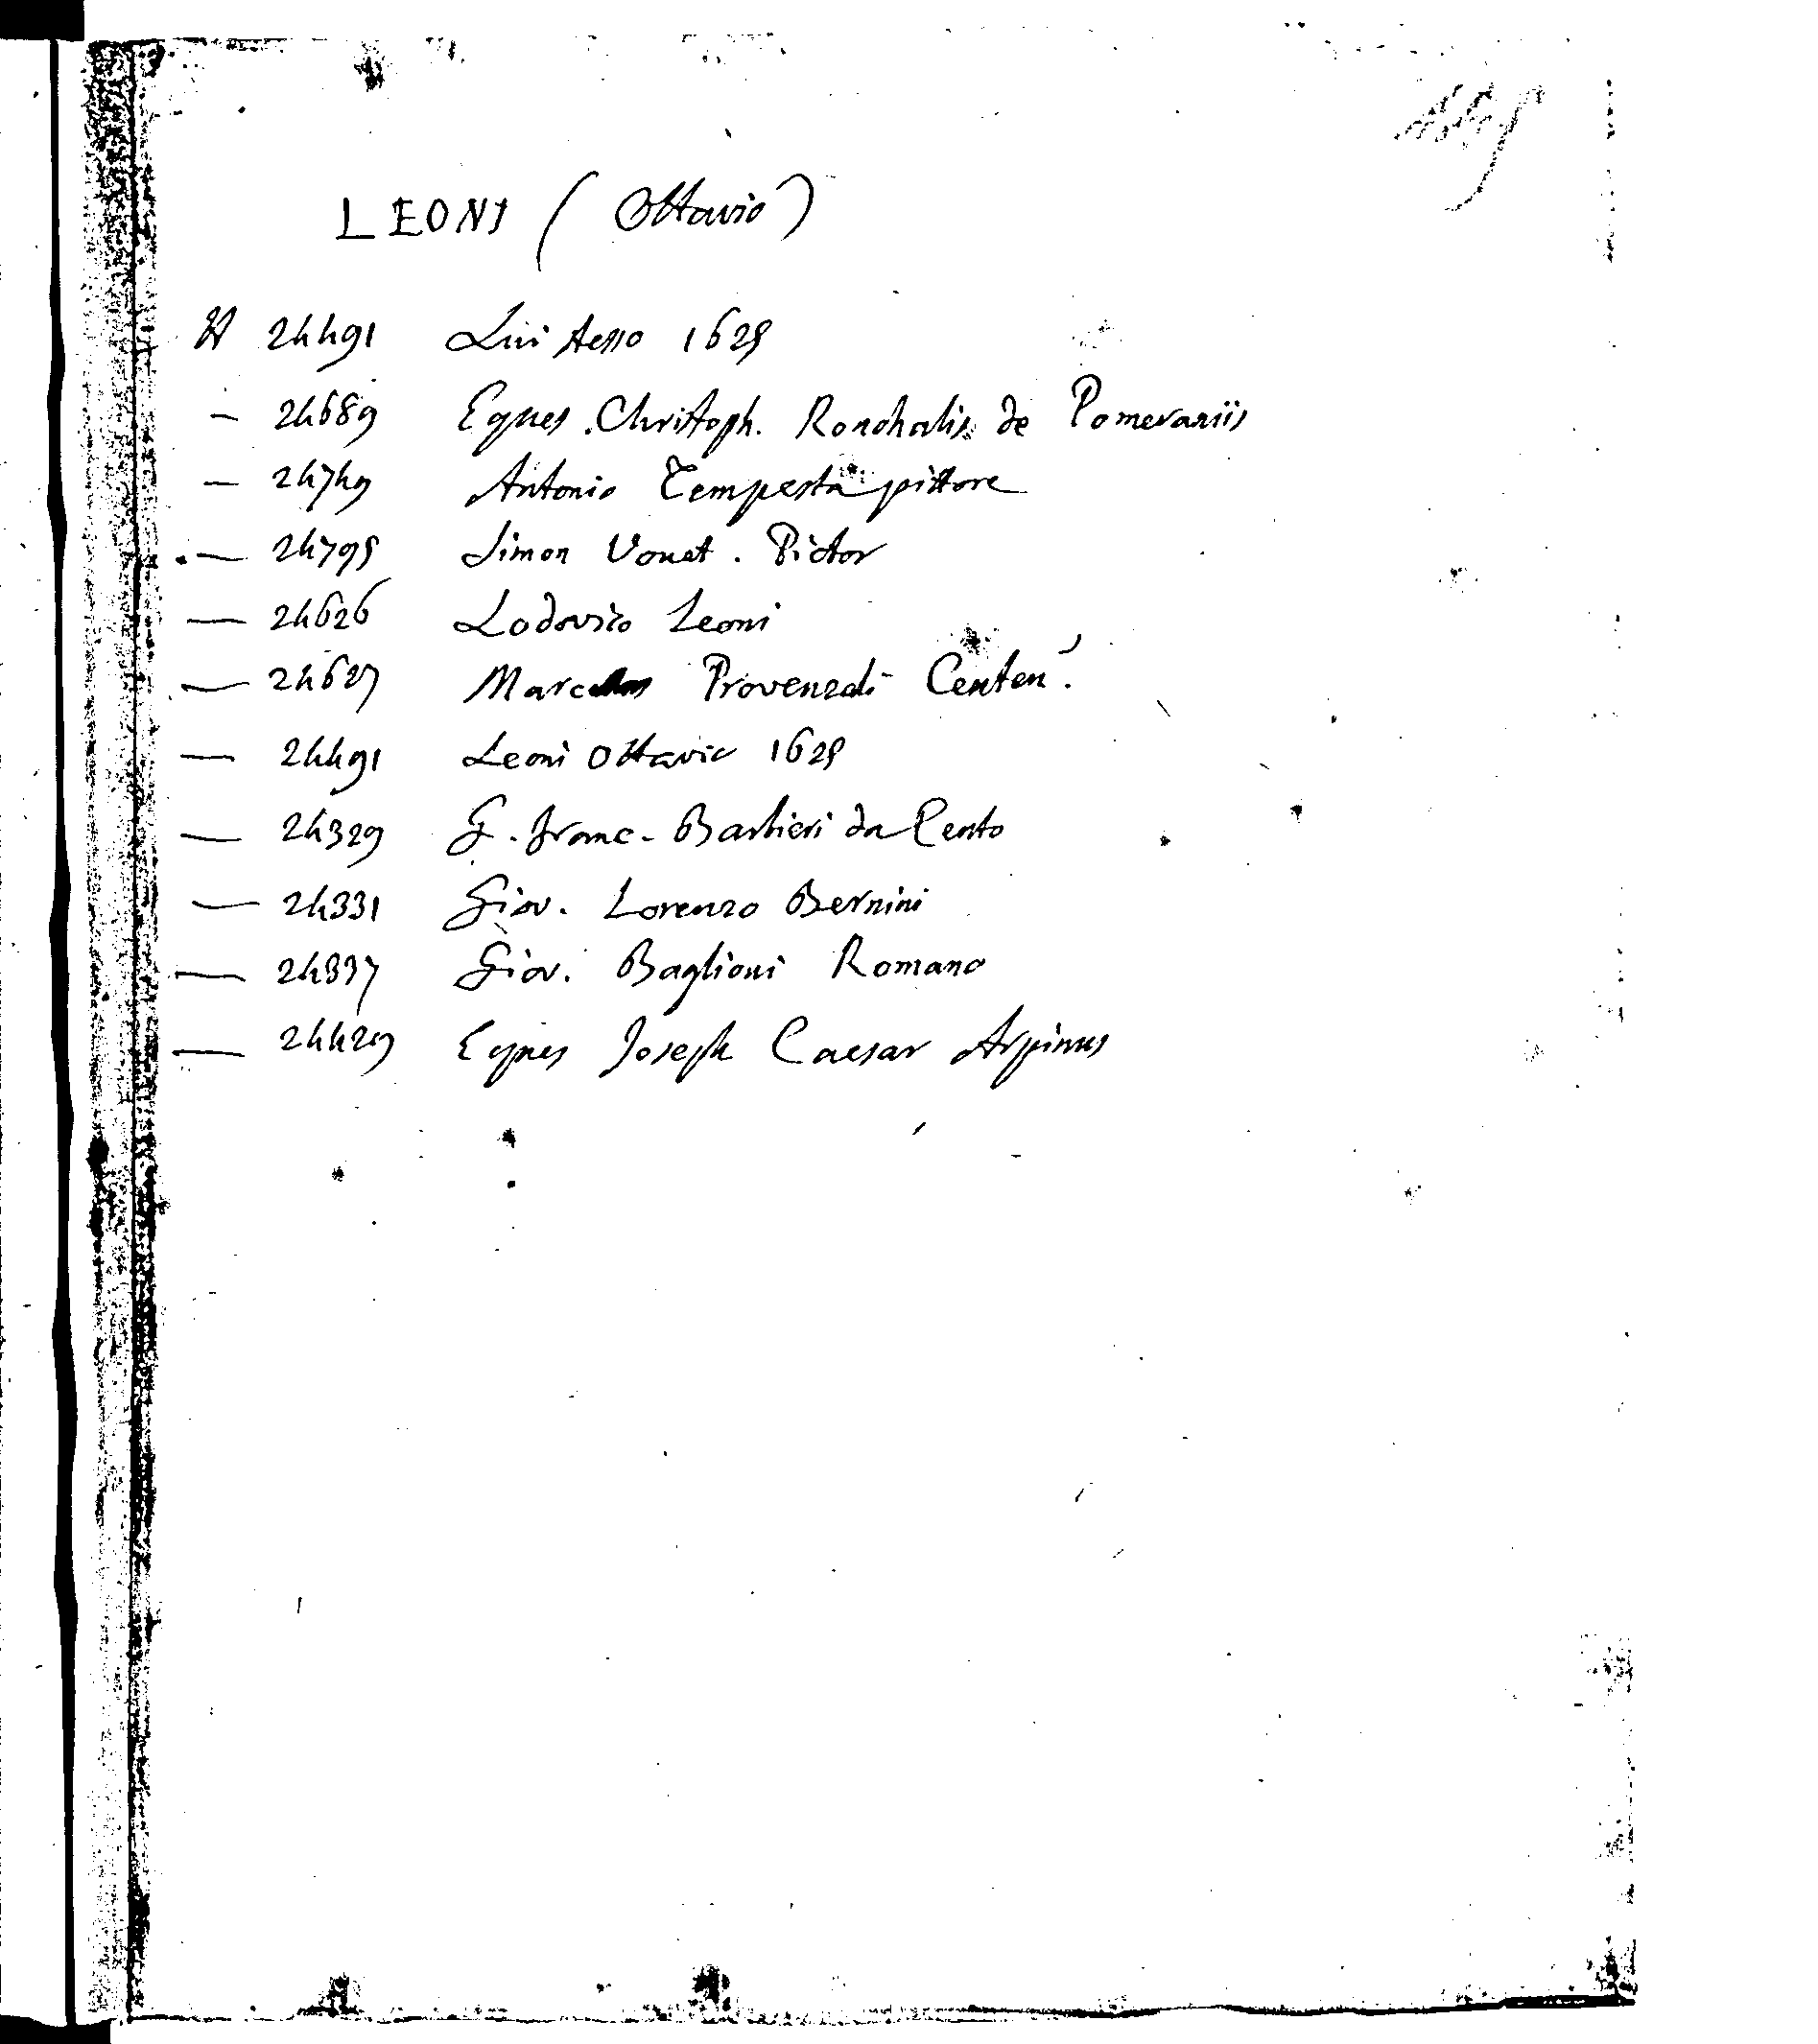 LEONI (Ottavio)
H 24491 Lui stesso 1625
- 24689 Eques. Christoph. Ronchalis de Pomeraniis
- 24749 Antonio Tempesta pittore
— 24795 Simon Vouet. Pictor
— 24626 Lodovico Leoni
— 24627 Provenzali Centen'.
— 24491 Leoni Ottavio 1625
— 24329 G. Franc. Barbieri da Cento
— 24331 Giov. Lorenzo Bernini
— 24337 Giov. Baglioni Romano
— 24429 Eques Joseph Caesar Arpinus